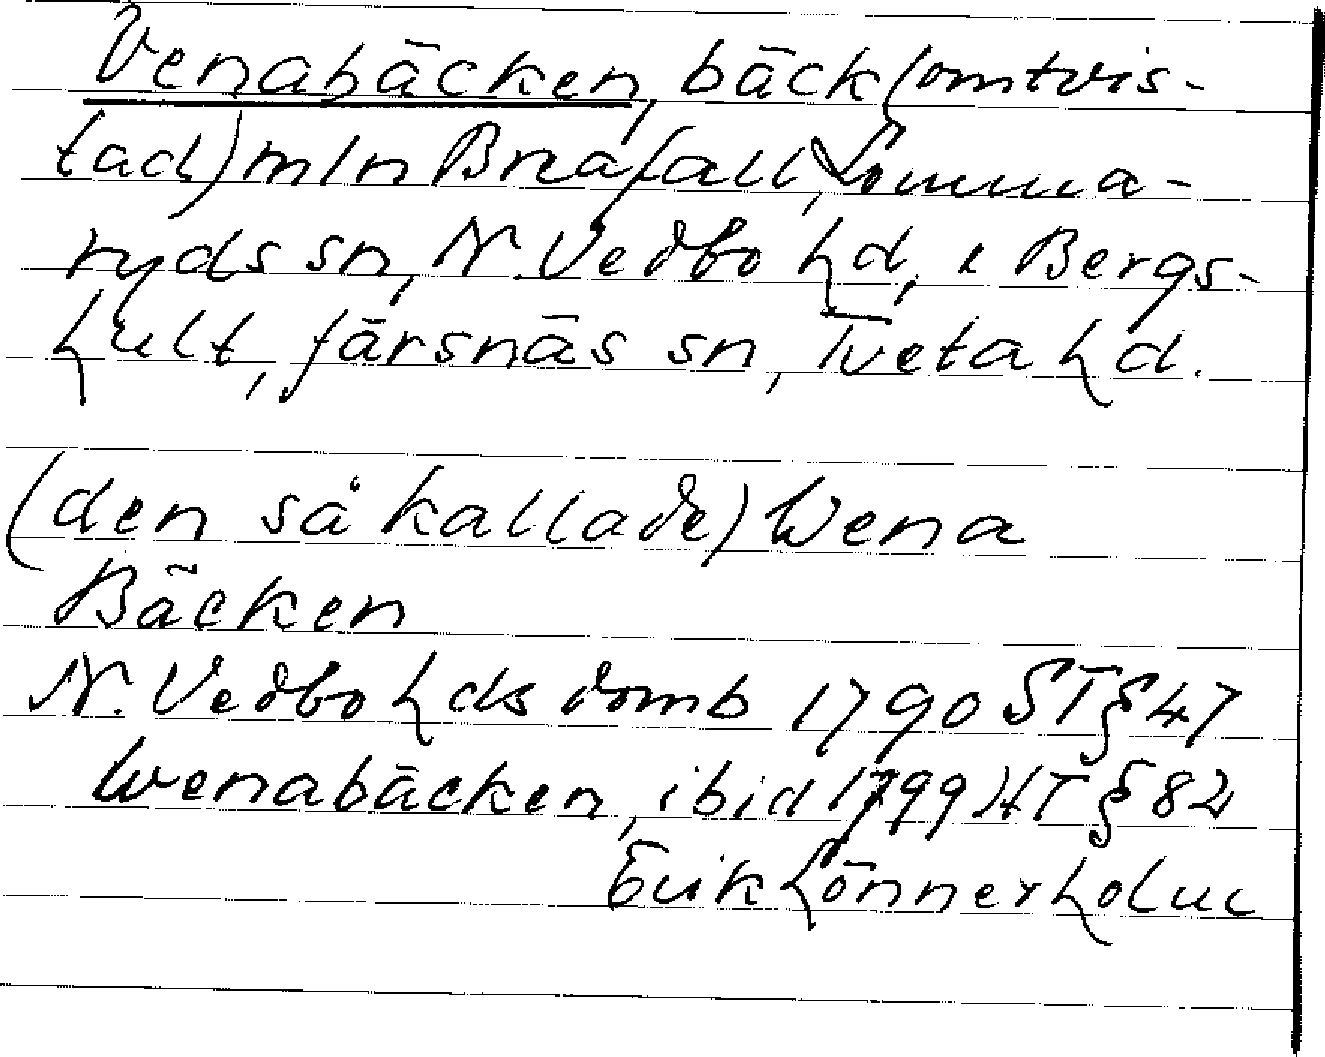 Venabäcken, bäck (omtvis-
tad) mln Bnafall, Lomma-
ryds sn, N. Vedbo hd, i Bergs-
hult, Järsnäs sn, Tveta hd.
(den så kallade) Wena
Bäcken
N. Vedbo hds domb 1790 ST § 47
Wenabäcken, ibid 1799 HT § 82
Erik Lönnerholm